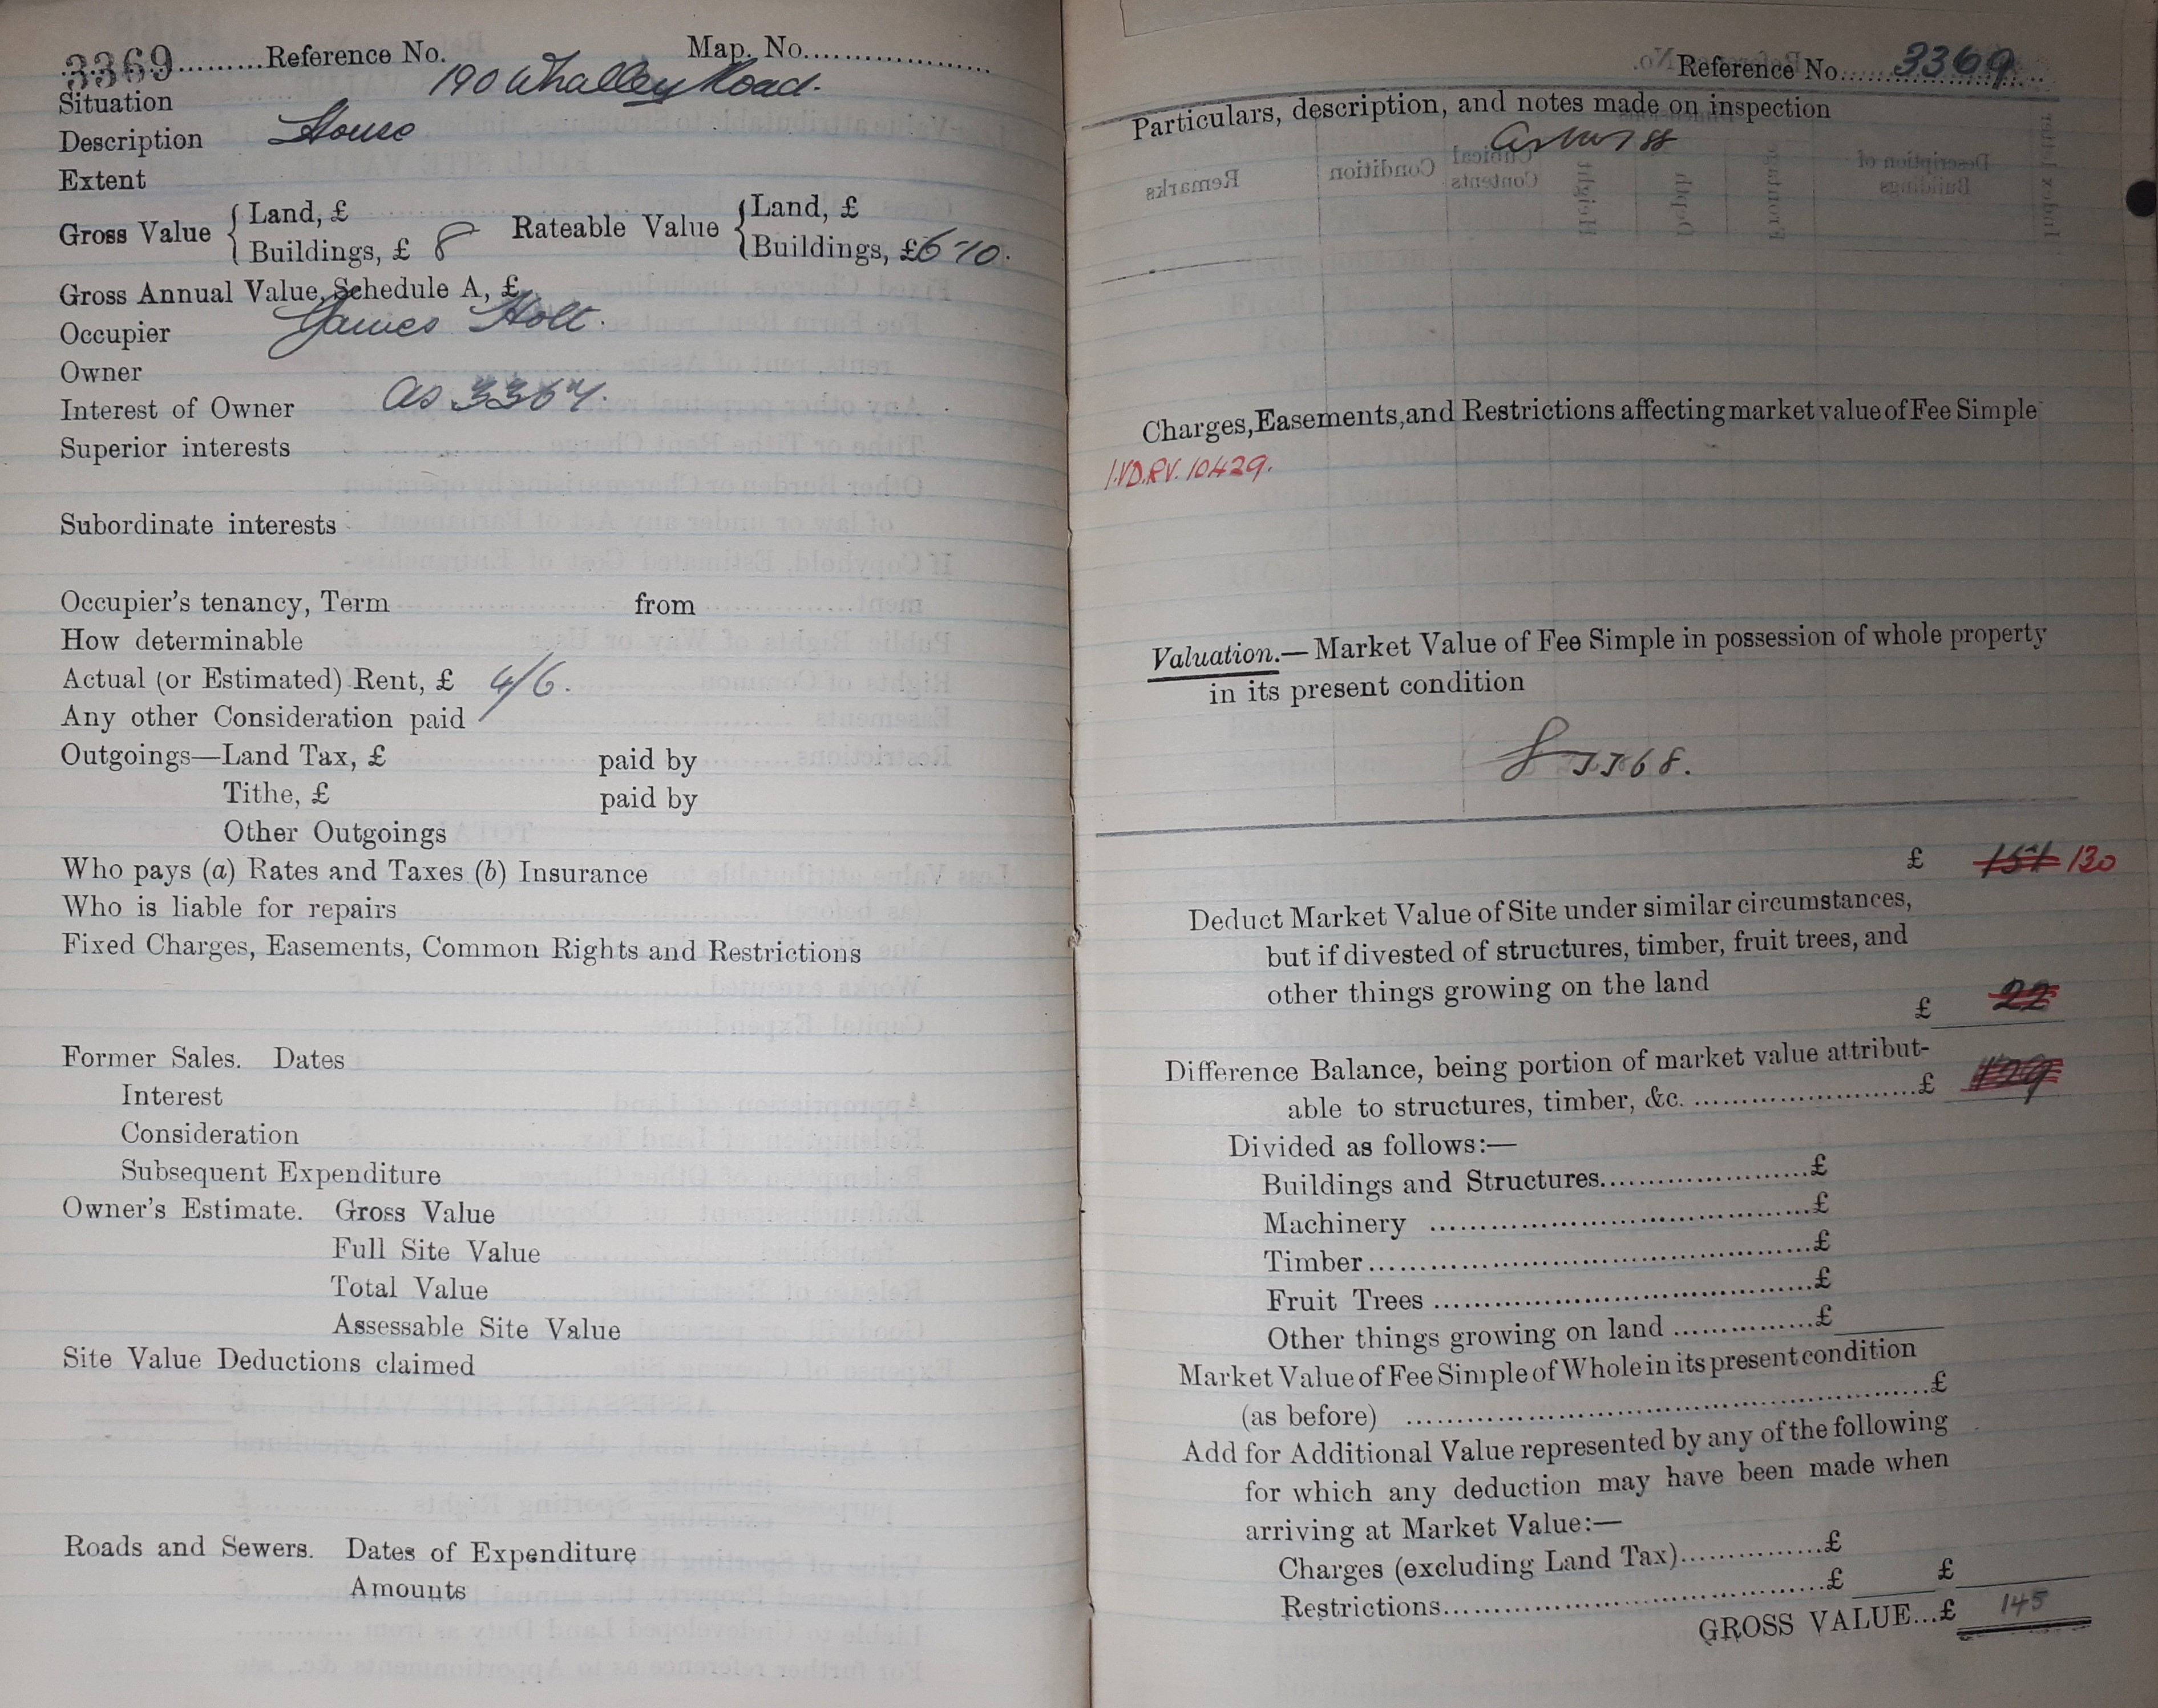 3369 Reference No. Map. No.
Situation 190 Whalley Road.
Description House
Extent
Gross Value { Land, £ Rateable Value { Land, £
Buildings, £ 8 Buildings, £6-10.
Gross Annual Value, Schedule A, £
Occupier James Holt.
Owner
Interest of Owner As 3367.
Superior interests
Subordinate interests
Occupier's tenancy, Term from
How determinable
Actual (or Estimated) Rent, £ 4/6.
Any other Consideration paid
Outgoings—Land Tax, £ paid by
Tithe, £ paid by
Other Outgoings
Who pays (a) Rates and Taxes (b) Insurance
Who is liable for repairs
Fixed Charges, Easements, Common Rights and Restrictions
Former Sales. Dates
Interest
Consideration
Subsequent Expenditure
Owner's Estimate. Gross Value
Full Site Value
Total Value
Assessable Site Value
Site Value Deductions claimed
Roads and Sewers. Dates of Expenditure
Amounts
Reference No. 3369
Particulars, description, and notes made on inspection
Charges, Easements, and Restrictions affecting market value of Fee Simple
I.V.D.R.V. 10429.
Valuation.—Market Value of Fee Simple in possession of whole property
in its present condition
3368.
£ 151 130
Deduct Market Value of Site under similar circumstances,
but if divested of structures, timber, fruit trees, and
other things growing on the land
£ 22
Difference Balance, being portion of market value attribut-
able to structures, timber, &c. £ 129
Divided as follows:—
Buildings and Structures £
Machinery £
Timber £
Fruit Trees £
Other things growing on land £
Market Value of Fee Simple of Whole in its present condition
(as before) £
Add for Additional Value represented by any of the following
for which any deduction may have been made when
arriving at Market Value:—
Charges (excluding Land Tax) £
Restrictions £ £
GROSS VALUE...£ 145